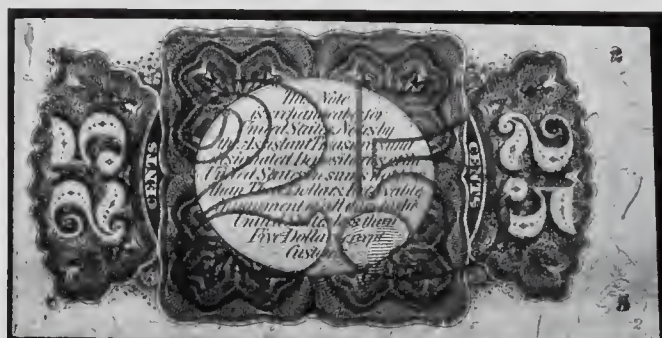 This Note
is exchangeable for
United States Notes by
the Assistant Treasurers and
designated Depositaries of the
United States in sums not less
than Three Dollars. Receivable
in payment of all dues to the
United States less than
Five Dollars except
Customs.
25
CENTS
25
CENTS
25
2
5
2